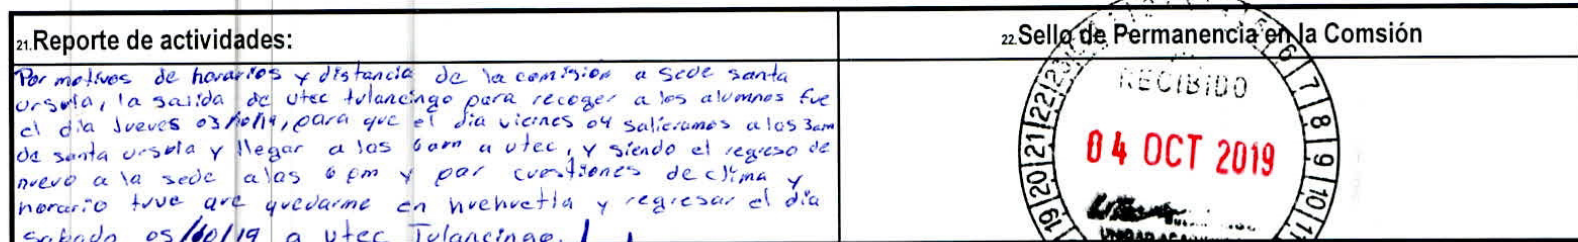 21. Reporte de actividades:
Por motivos de horarios y distancia de la comision a sede santa
ursula, la salida de utec tulancingo para recoger a los alumnos fue
el dia Jueves 03/10/19, para que el dia viernes 04 salieramos a las 3am
de santa ursula y llegar a las 6am a utec, y siendo el regreso de
nuevo a la sede a las 6 pm y por cuestiones de clima y
horario tuve que quedarme en huehuetla y regresar el dia
sabado 05/10/19 a utec Tulancingo.
22. Sello de Permanencia en la Comsión
RECIBIDO
04 OCT 2019
19 20 21 22 23
6 7 8 9 10 11